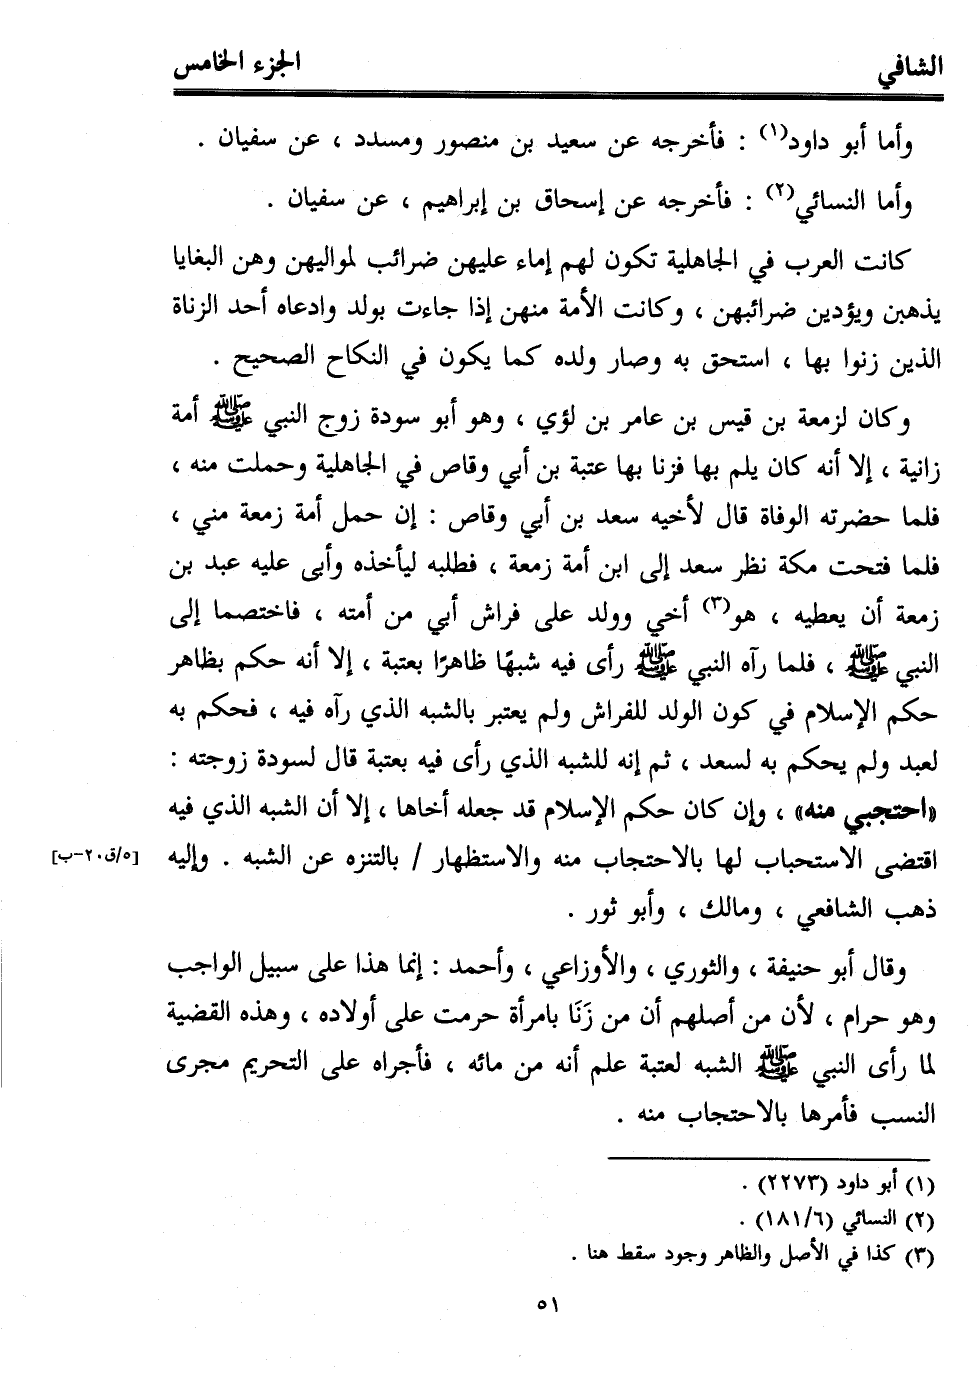 الشافي الجزء الخامس
وأما أبو داود(١) : فأخرجه عن سعيد بن منصور ومسدد ، عن سفيان .
وأما النسائي(٢) : فأخرجه عن إسحاق بن إبراهيم ، عن سفيان .
كانت العرب في الجاهلية تكون لهم إماء عليهن ضرائب لمواليهن وهن البغايا
يذهبن ويؤدين ضرائبهن ، وكانت الأمة منهن إذا جاءت بولد وادعاه أحد الزناة
الذين زنوا بها ، استحق به وصار ولده كما يكون في النكاح الصحيح .
وكان لزمعة بن قيس بن عامر بن لؤي ، وهو أبو سودة زوج النبي ﷺ أمة
زانية ، إلا أنه كان يلم بها فزنا بها عتبة بن أبي وقاص في الجاهلية وحملت منه ،
فلما حضرته الوفاة قال لأخيه سعد بن أبي وقاص : إن حمل أمة زمعة مني ،
فلما فتحت مكة نظر سعد إلى ابن أمة زمعة ، فطلبه ليأخذه وأبى عليه عبد بن
زمعة أن يعطيه ، هو(٣) أخي وولد على فراش أبي من أمته ، فاختصما إلى
النبي ﷺ ، فلما رآه النبي ﷺ رأى فيه شبهًا ظاهرًا بعتبة ، إلا أنه حكم بظاهر
حكم الإسلام في كون الولد للفراش ولم يعتبر بالشبه الذي رآه فيه ، فحكم به
لعبد ولم يحكم به لسعد ، ثم إنه للشبه الذي رأى فيه بعتبة قال لسودة زوجته :
«احتجبي منه» ، وإن كان حكم الإسلام قد جعله أخاها ، إلا أن الشبه الذي فيه
اقتضى الاستحباب لها بالاحتجاب منه والاستظهار / بالتنزه عن الشبه . وإليه [٥/ق٢٠-ب]
ذهب الشافعي ، ومالك ، وأبو ثور .
وقال أبو حنيفة ، والثوري ، والأوزاعي ، وأحمد : إنما هذا على سبيل الواجب
وهو حرام ، لأن من أصلهم أن من زَنَا بامرأة حرمت على أولاده ، وهذه القضية
لما رأى النبي ﷺ الشبه لعتبة علم أنه من مائه ، فأجراه على التحريم مجرى
النسب فأمرها بالاحتجاب منه .
(١) أبو داود (٢٢٧٣) .
(٢) النسائي (١٨١/٦) .
(٣) كذا في الأصل والظاهر وجود سقط هنا .
٥١